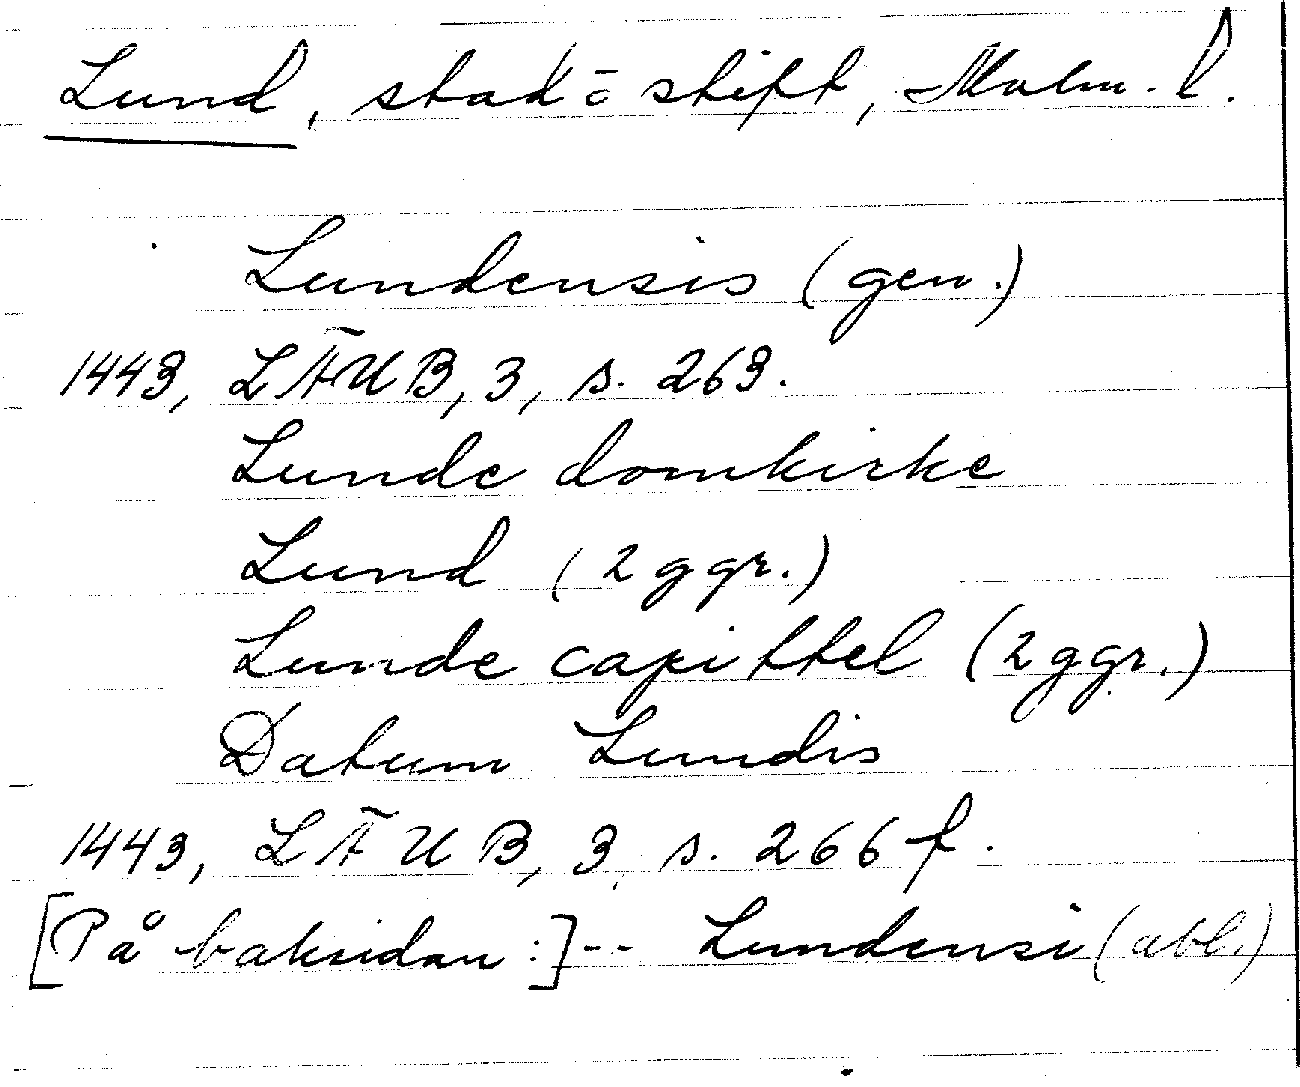 Lund, stad o stift, Malm. l.
Lundensis (gen.)
1443, LÄUB, 3, s. 263.
Lunde domkirke
Lund (2 ggr.)
Lunde capittel (2 ggr.)
Datum Lundis
1443, LÄUB, 3, s. 266 f.
[På baksidan:]-- Lundensi (abl.)